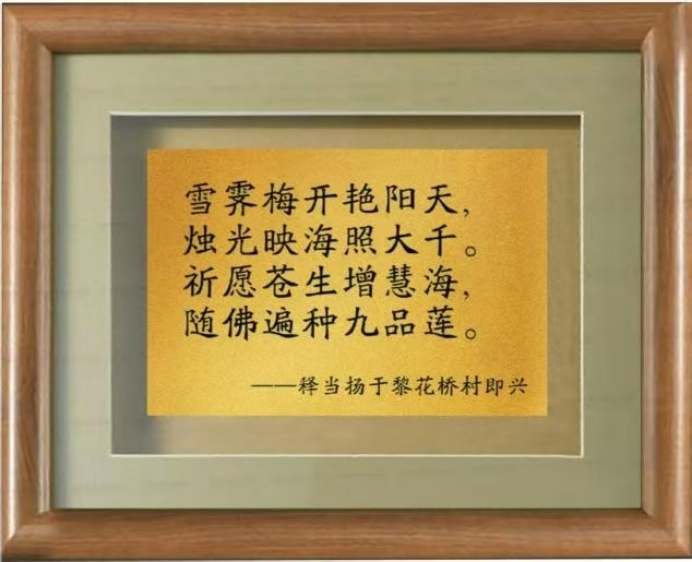 雪霁梅开艳阳天，
烛光映海照大千。
祈愿苍生增慧海，
随佛遍种九品莲。
——释当扬于黎花桥村即兴